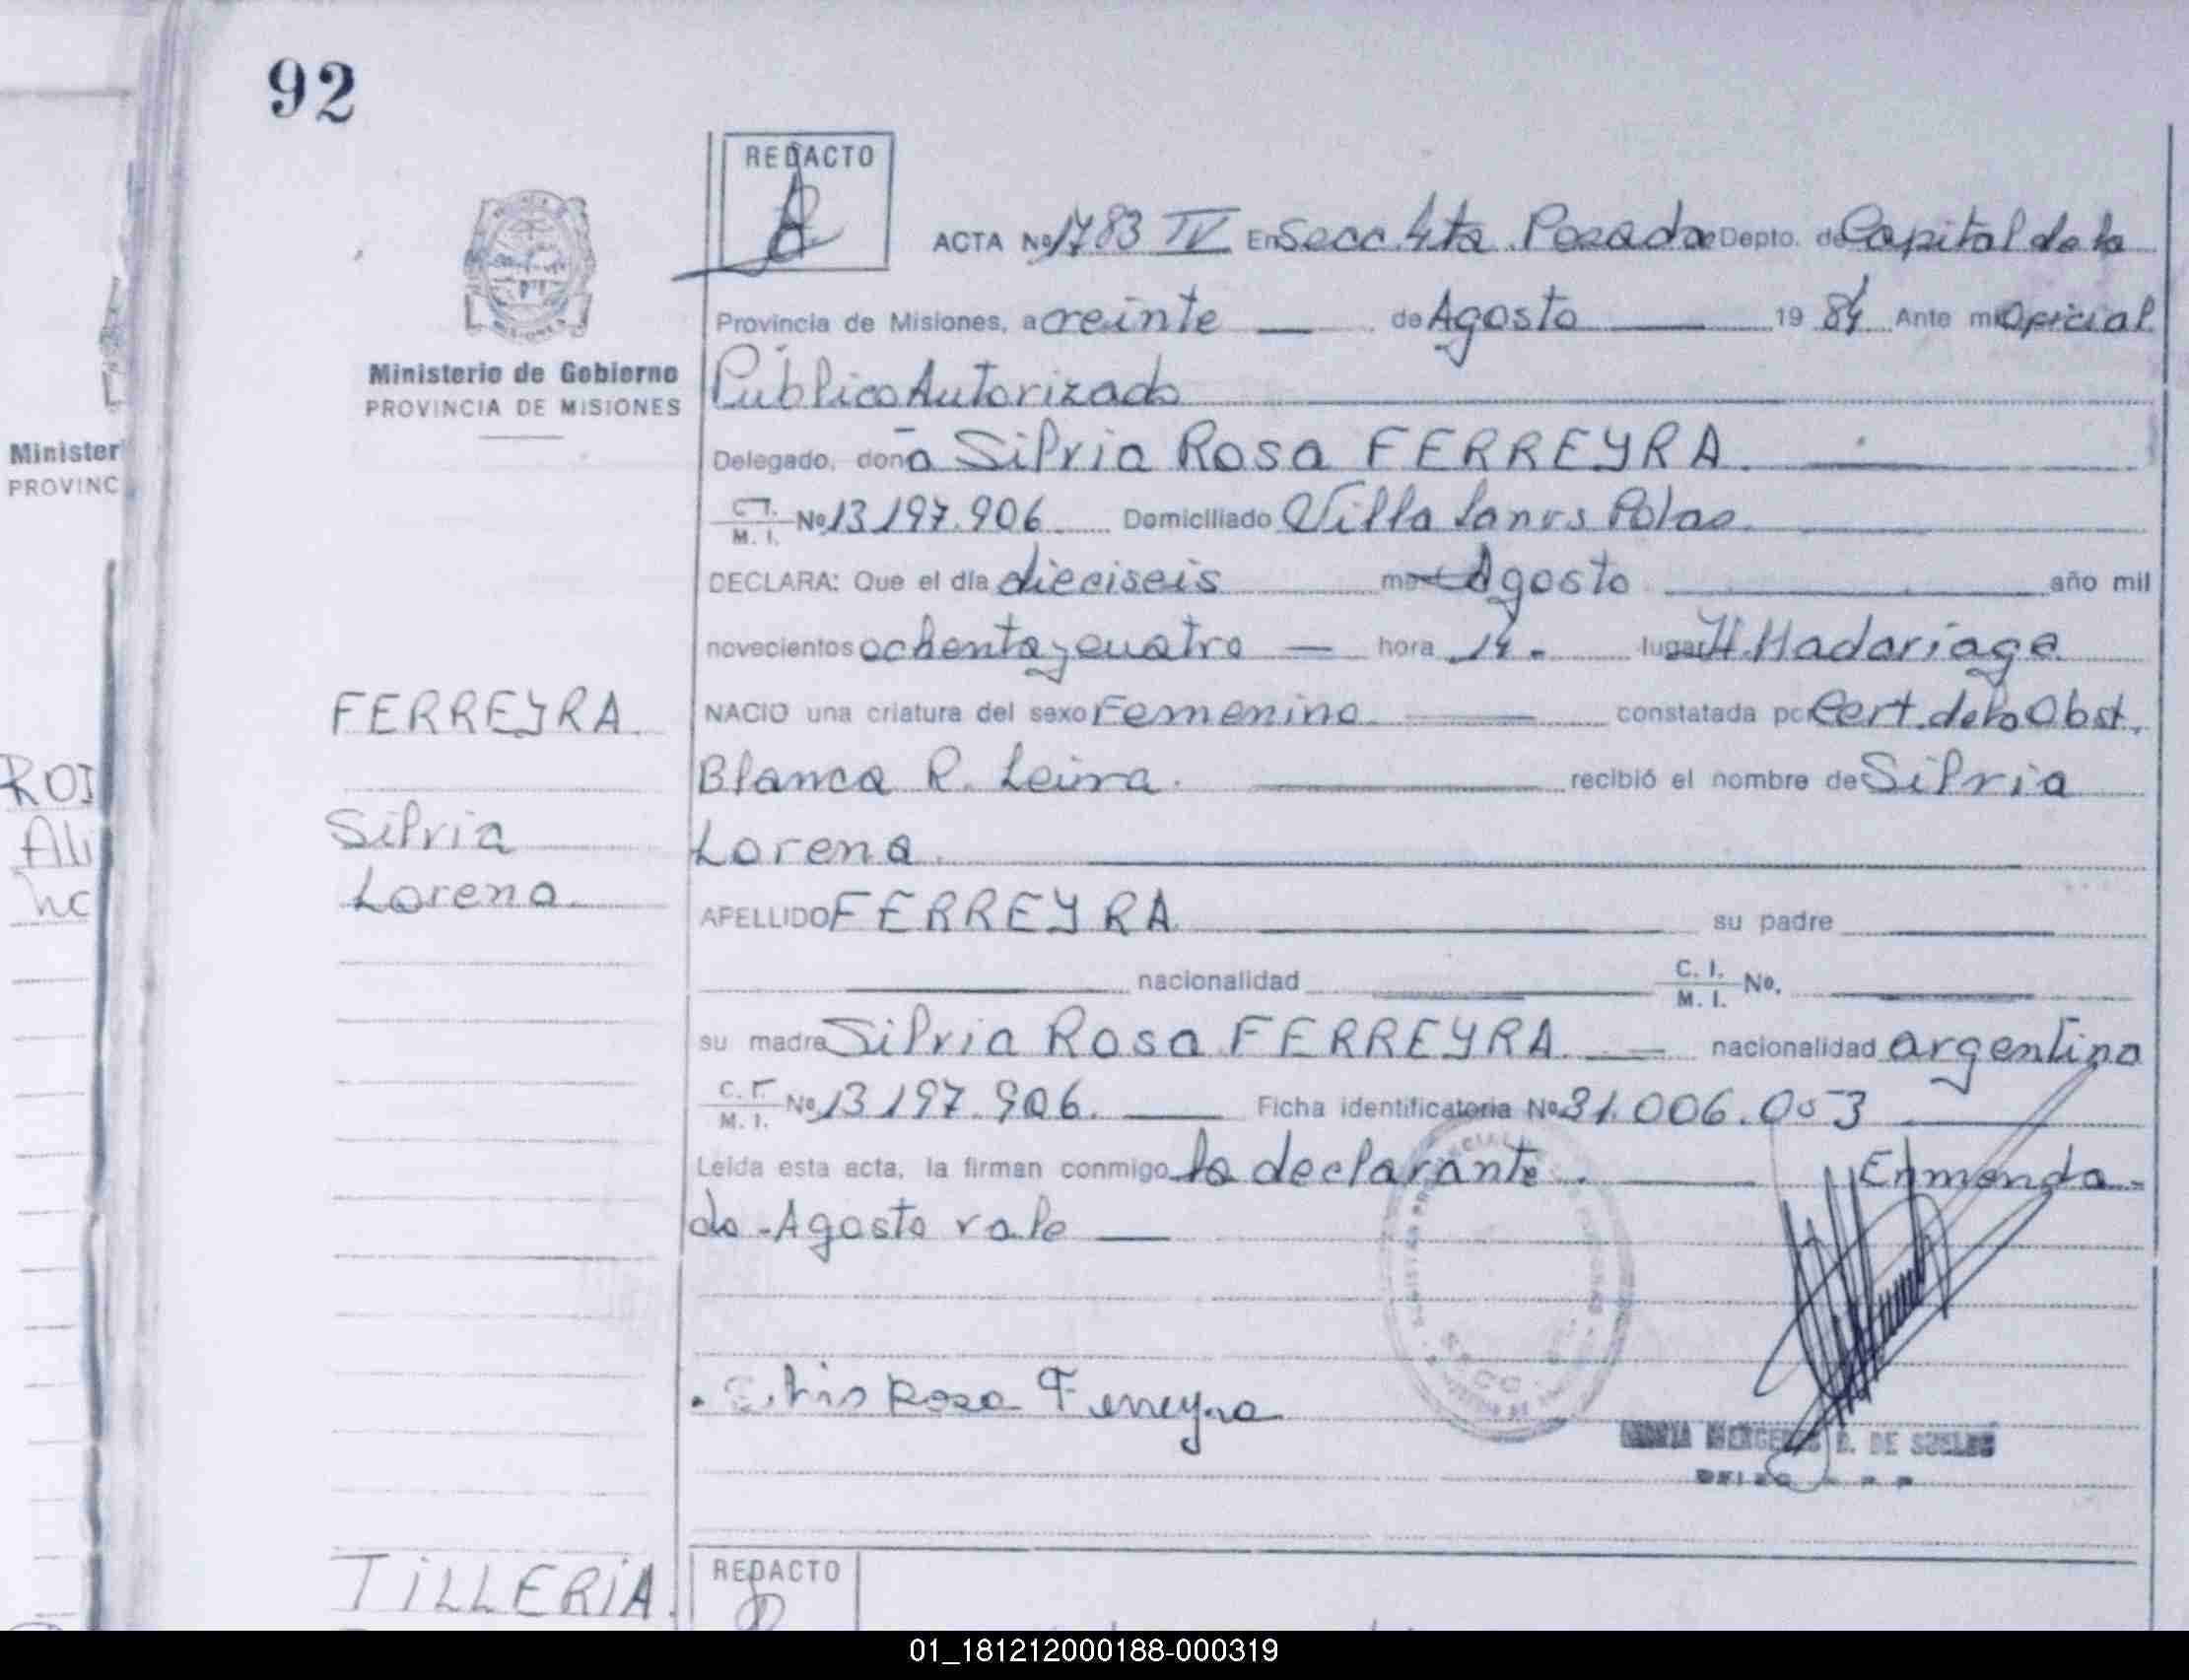 92
REDACTO
ACTA Nº 1783 IV En Secc 4ta Posadas Depto. de Capital de la
Provincia de Misiones, a veinte de Agosto 19 84 Ante mi Oficial
Ministerio de Gobierno
PROVINCIA DE MISIONES
Público Autorizado
Minister
PROVINC
Delegado, doña Silvia Rosa FERREYRA
C.I. M. I. Nº 13197.906 Domiciliado Villa Lanus Pdas.
DECLARA: Que el día dieciseis mes Agosto año mil
novecientos ochenta y cuatro hora 14. lugar H. Madariaga
FERREYRA
NACIO una criatura del sexo Femenino constatada por Cert. de la Obst.
ROI
Blanca R. Leiva. recibió el nombre de Silvia
Silvia
Ali
Lorena
Lorena
APELLIDO FERREYRA su padre
nacionalidad C. I. M. I. No.
su madre Silvia Rosa FERREYRA nacionalidad argentina
C. I. M. I. Nº 13197.906. Ficha identificatoria Nº 31.006.053
Leída esta acta, la firman conmigo la declarante. Enmenda-
do - Agosto vale
Silvia Rosa Ferreyra
MERCEDES D. DE
TILLERIA
REDACTO
01_181212000188-000319